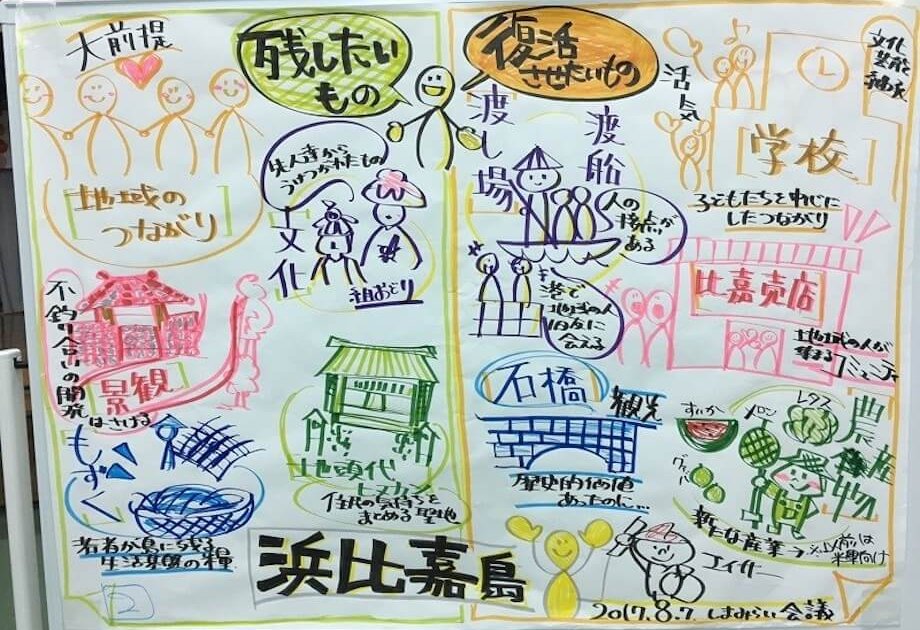 大前提
地域の
つながり
残したい
もの
先人達から
うけつがれたもの
文化
組おどり
不釣り合いの開発
はさける
景観
もずく
若者が島に残る
生活基盤の糧
地頭代
住民の気持ちを
まとめる聖地
浜比嘉島
復活
させたいもの
渡し場
渡船
人の
接点が
ある
港で
地域の人
同士に
会える
活気
学校
文化
芸能
子どもたちを軸に
したつながり
比嘉売店
地域の人が
集まる
コミュニティ
石橋
観光
歴史的価値
あったのに…
農産物
すいか
メロン
レタス
グァバ
新たな産業
エイサー
2017.8.7 しまみらい会議